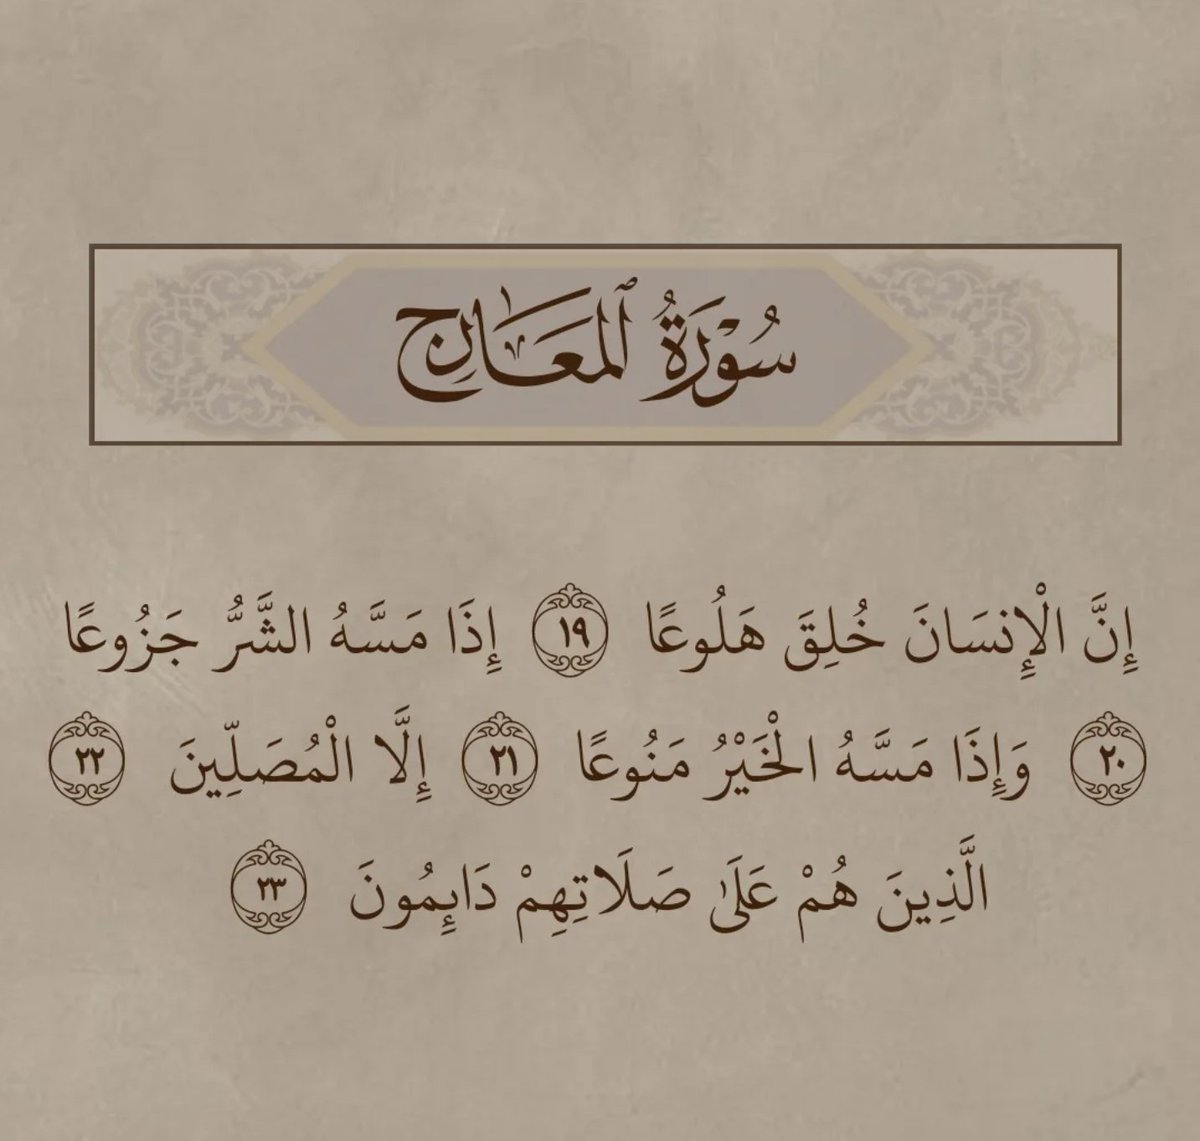 سُوْرَةُ ٱلمَعَارِج
إِنَّ الْإِنسَانَ خُلِقَ هَلُوعًا ١٩ إِذَا مَسَّهُ الشَّرُّ جَزُوعًا
٢٠ وَإِذَا مَسَّهُ الْخَيْرُ مَنُوعًا ٢١ إِلَّا الْمُصَلِّينَ ٢٢
الَّذِينَ هُمْ عَلَىٰ صَلَاتِهِمْ دَائِمُونَ ٢٣